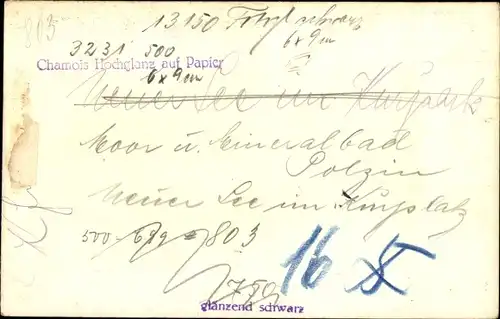 803
13150 schwarz
3231 500 6x9 cm
Chamois Hochglanz auf Papier
6x9 cm
Neuer See im Kurpark
Moor u. Mineralbad
Polzin
Neuer See im Kurplatz
500 6x9 = 803
16 5
glänzend schwarz